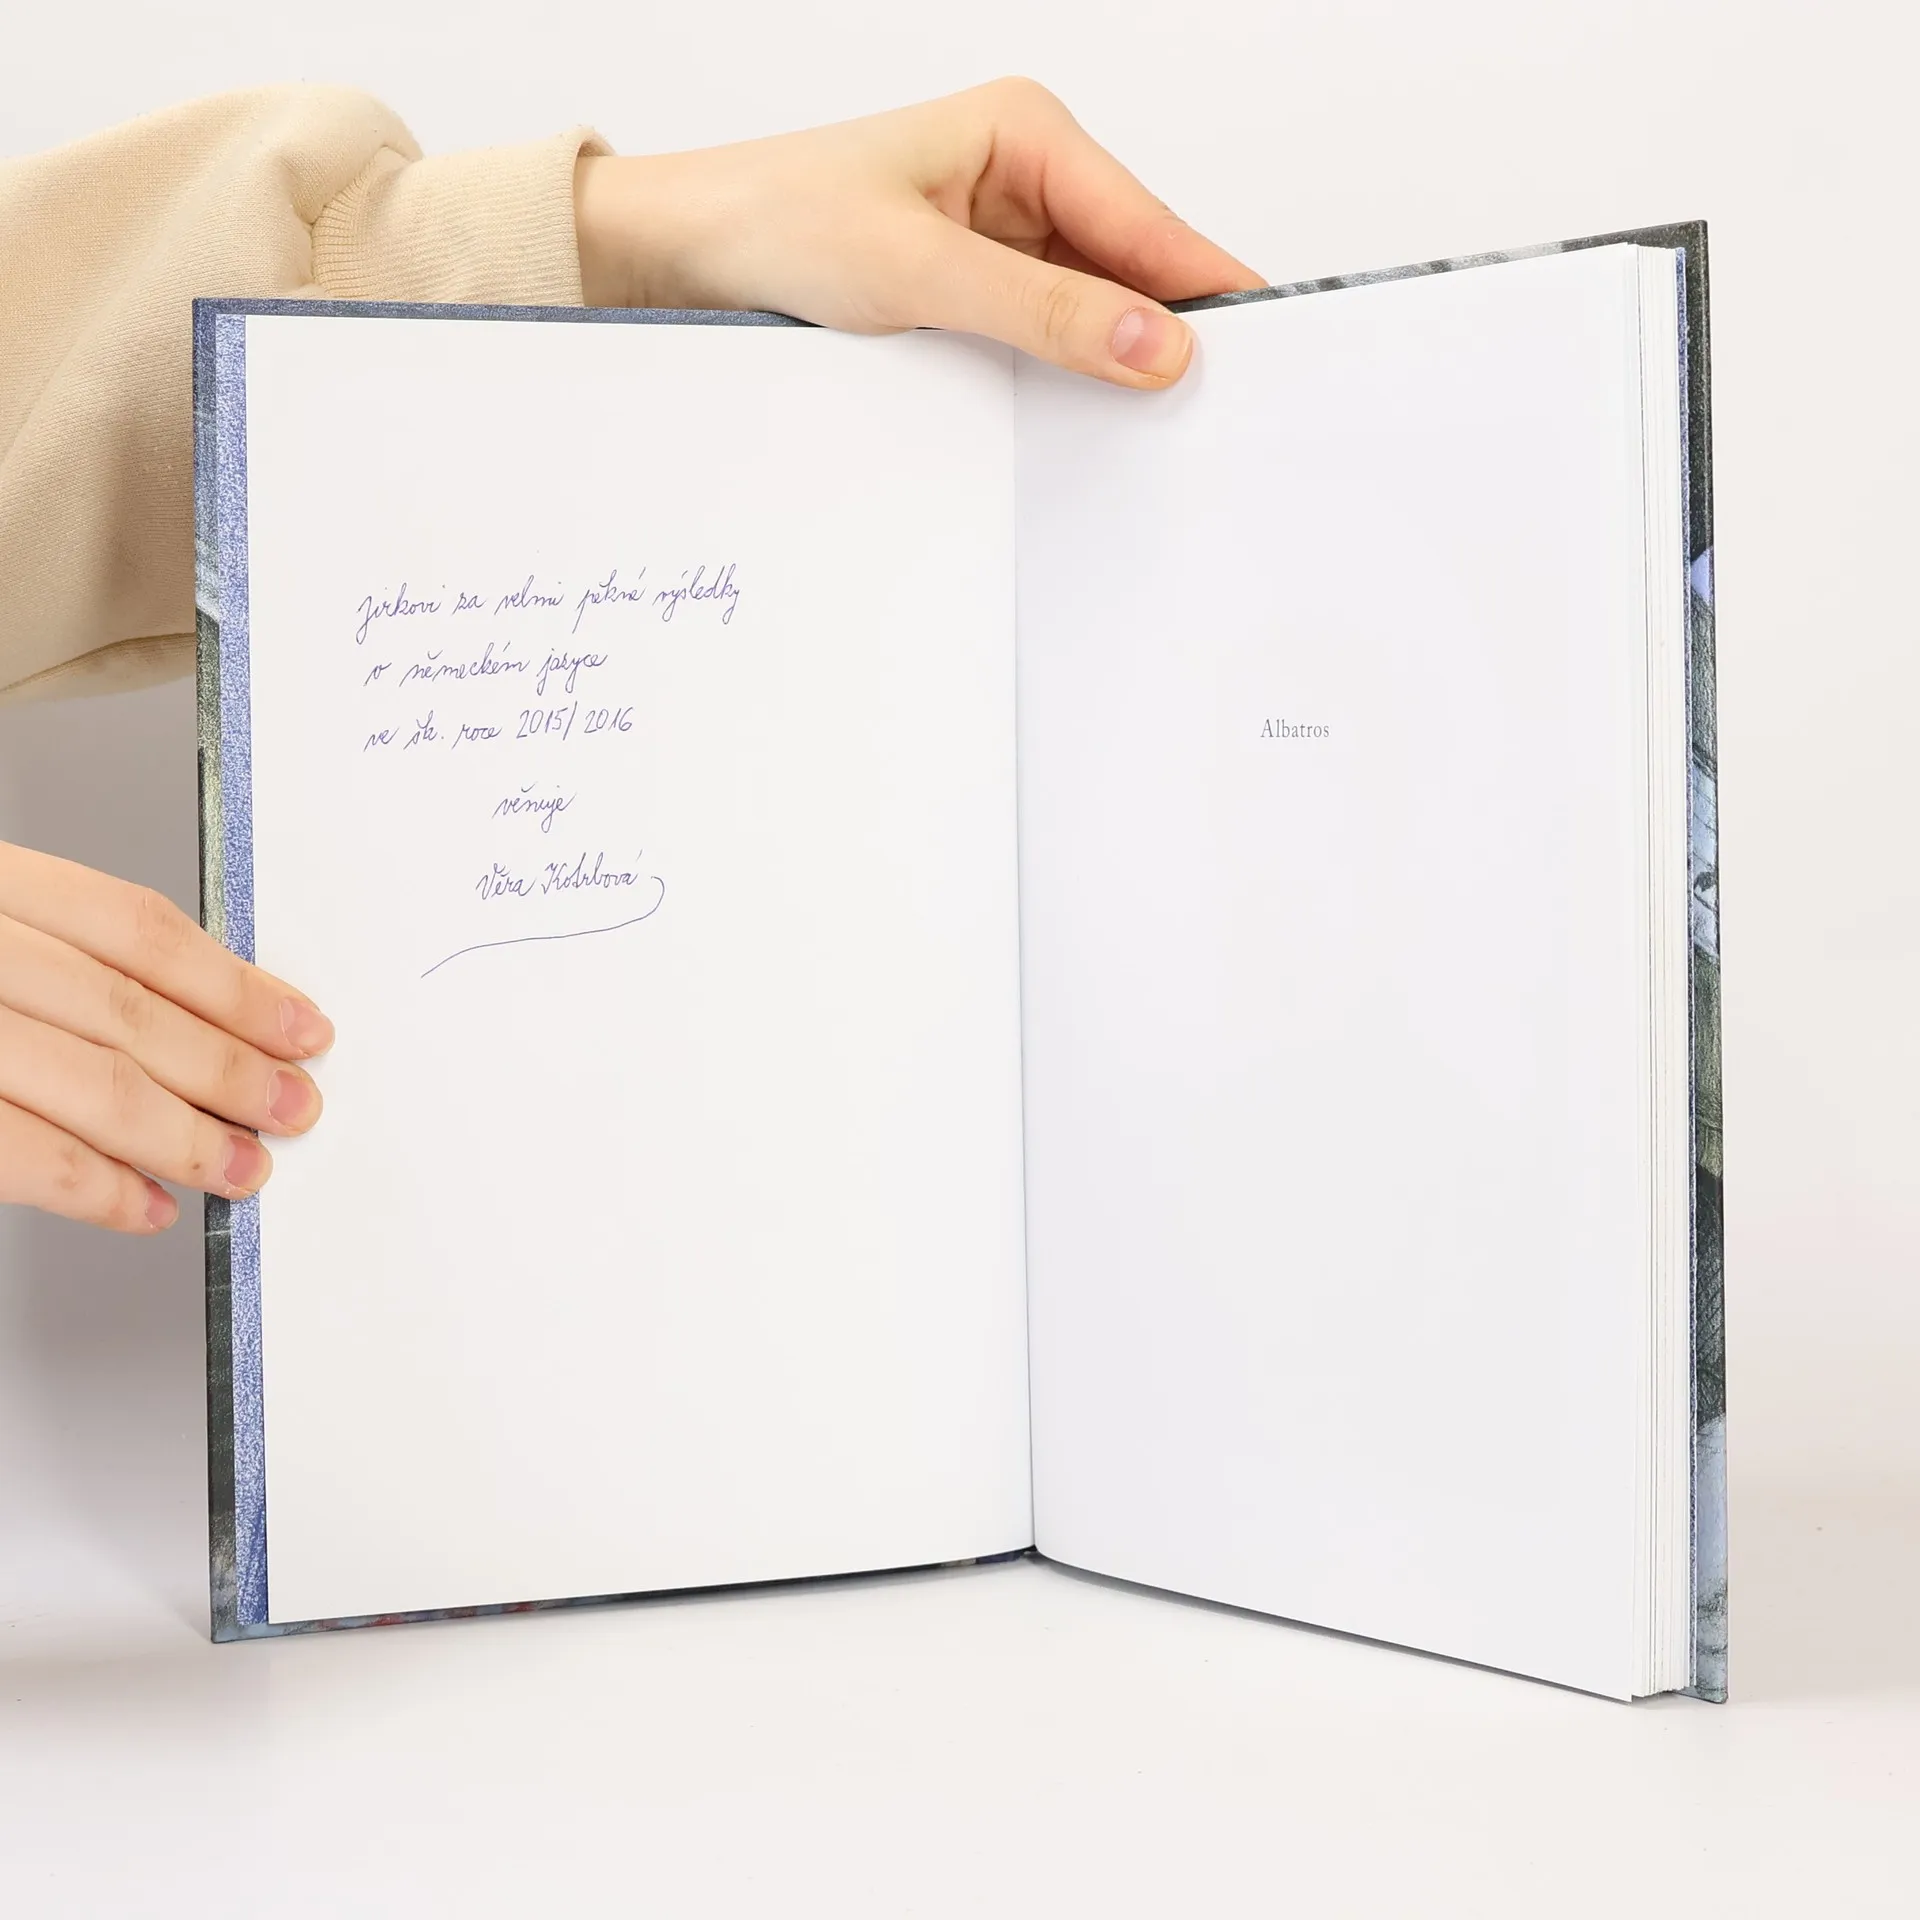 Jirkovi za velmi pěkné výsledky
v německém jazyce
ve šk. roce 2015/2016
věnuje
Věra Kotrbová
Albatros